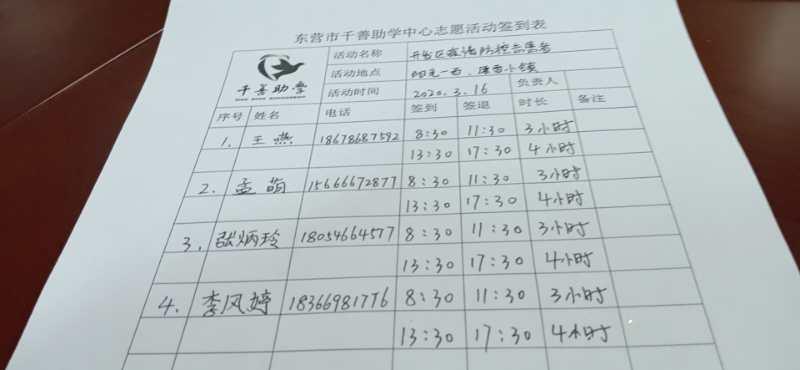 东营市千善助学中心志愿活动签到表
千善助学
活动名称 开发区疫情防控志愿者
活动地点 小镇
活动时间 2020.3.16 负责人
序号 姓名 电话 签到 签退 时长 备注
1. 王燕 18678687592 8:30 11:30 3小时
13:30 17:30 4小时
2. 孟萌 15666672877 8:30 11:30 3小时
13:30 17:30 4小时
3. 张炳玲 18054664577 8:30 11:30 3小时
13:30 17:30 4小时
4. 李风婷 18366981776 8:30 11:30 3小时
13:30 17:30 4小时